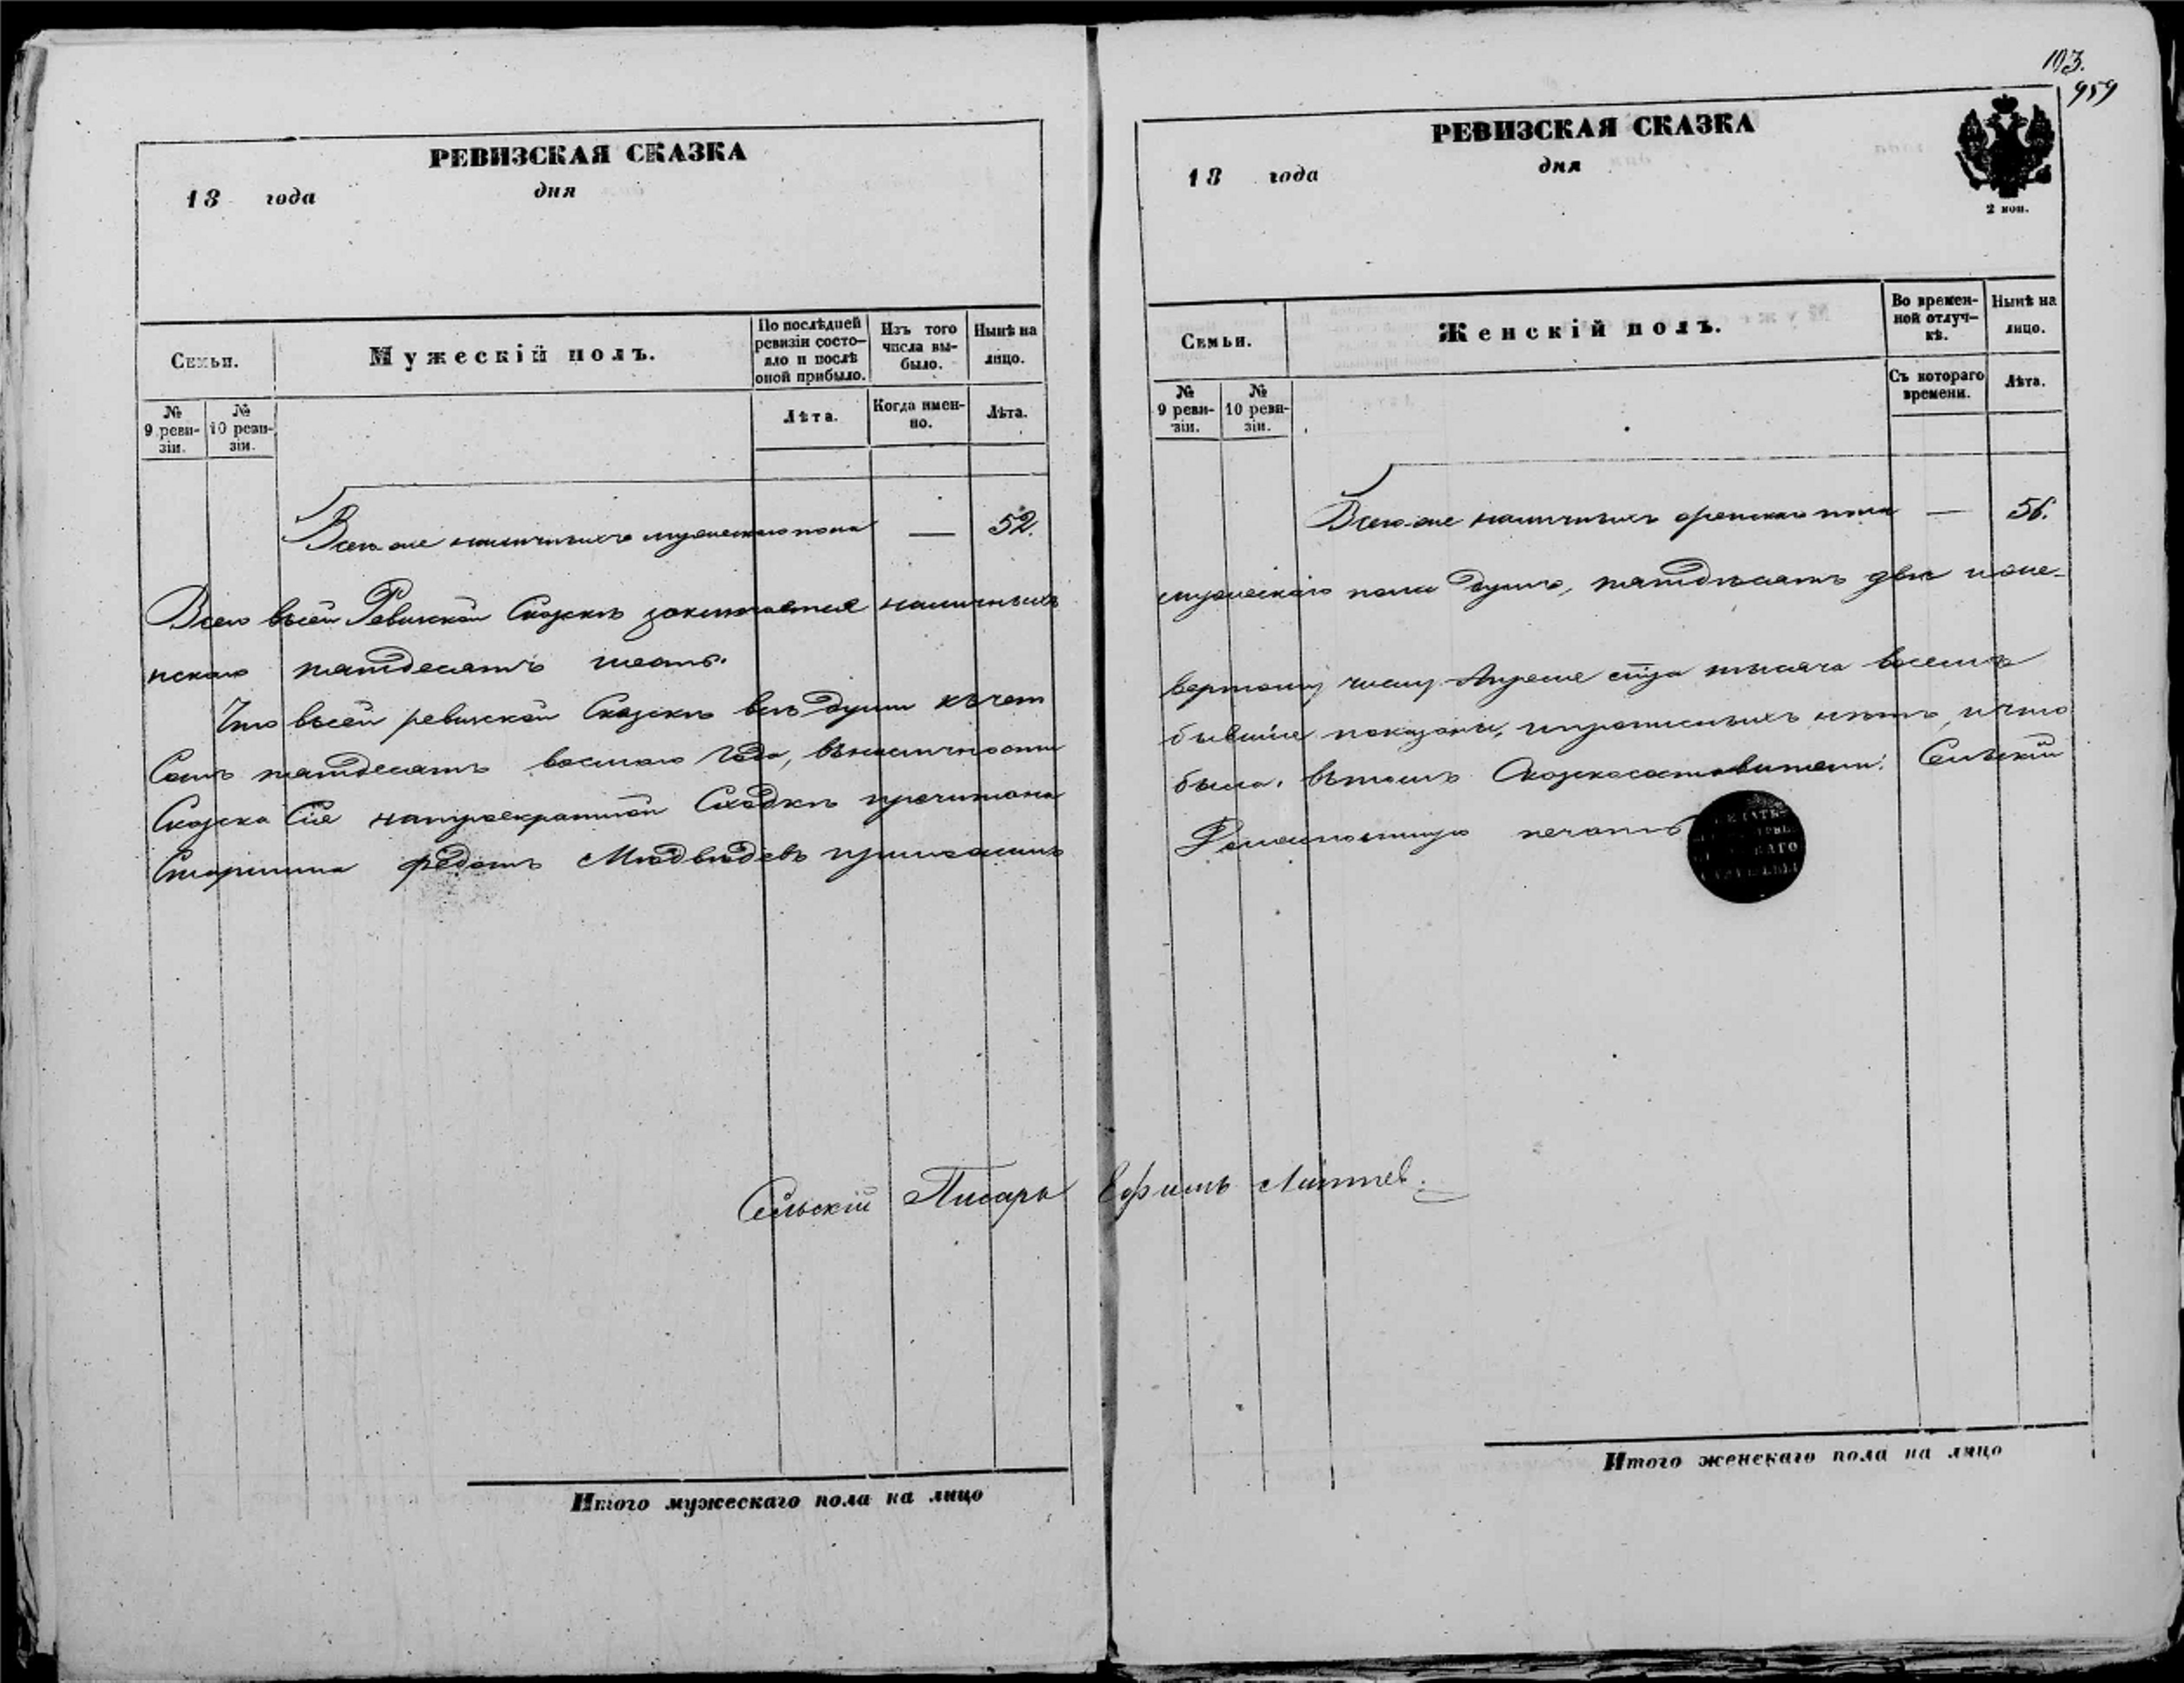 103.
959
РЕВИЗСКАЯ СКАЗКА
18 года дня
Семьи.
Мужескій полъ.
По послѣдней ревизіи состояло и послѣ оной прибыло.
Изъ того числа выбыло.
Нынѣ на лицо.
№ 9 ревизіи.
№ 10 ревизіи.
Лѣта.
Когда именно.
Лѣта.
Всего же наличныхъ мужескаго пола — 52.
Всего всей Ревизской Сказкѣ заключается наличныхъ
нскаго пятдесятъ шесть.
Что всей ревизской Сказкѣ всѣ души къ чет
Сотъ пятдесятъ восмаго года, вналичности
Сказка Сія натроекратной Сходкѣ прочитана
Старшина Федотъ Медвѣдевъ приложилъ
Сельскій Писарь
Итого мужескаго пола на лицо
РЕВИЗСКАЯ СКАЗКА
18 года дня
2 коп.
Семьи.
Женскій полъ.
Во временной отлучкѣ.
Нынѣ на лицо.
№ 9 ревизіи.
№ 10 ревизіи.
Съ котораго времени.
Лѣта.
Всего же наличныхъ женскаго пола — 56.
мужескаго пола душъ, пятдѣсятъ двѣ иже-
вертому числу Апреля сего тысяча восемь
бывшіе показаны, и прописныхъ нѣтъ, ичто
была. втомъ Сказкосоставители: Сельскій
печать
Ефимъ
Итого женскаго пола на лицо